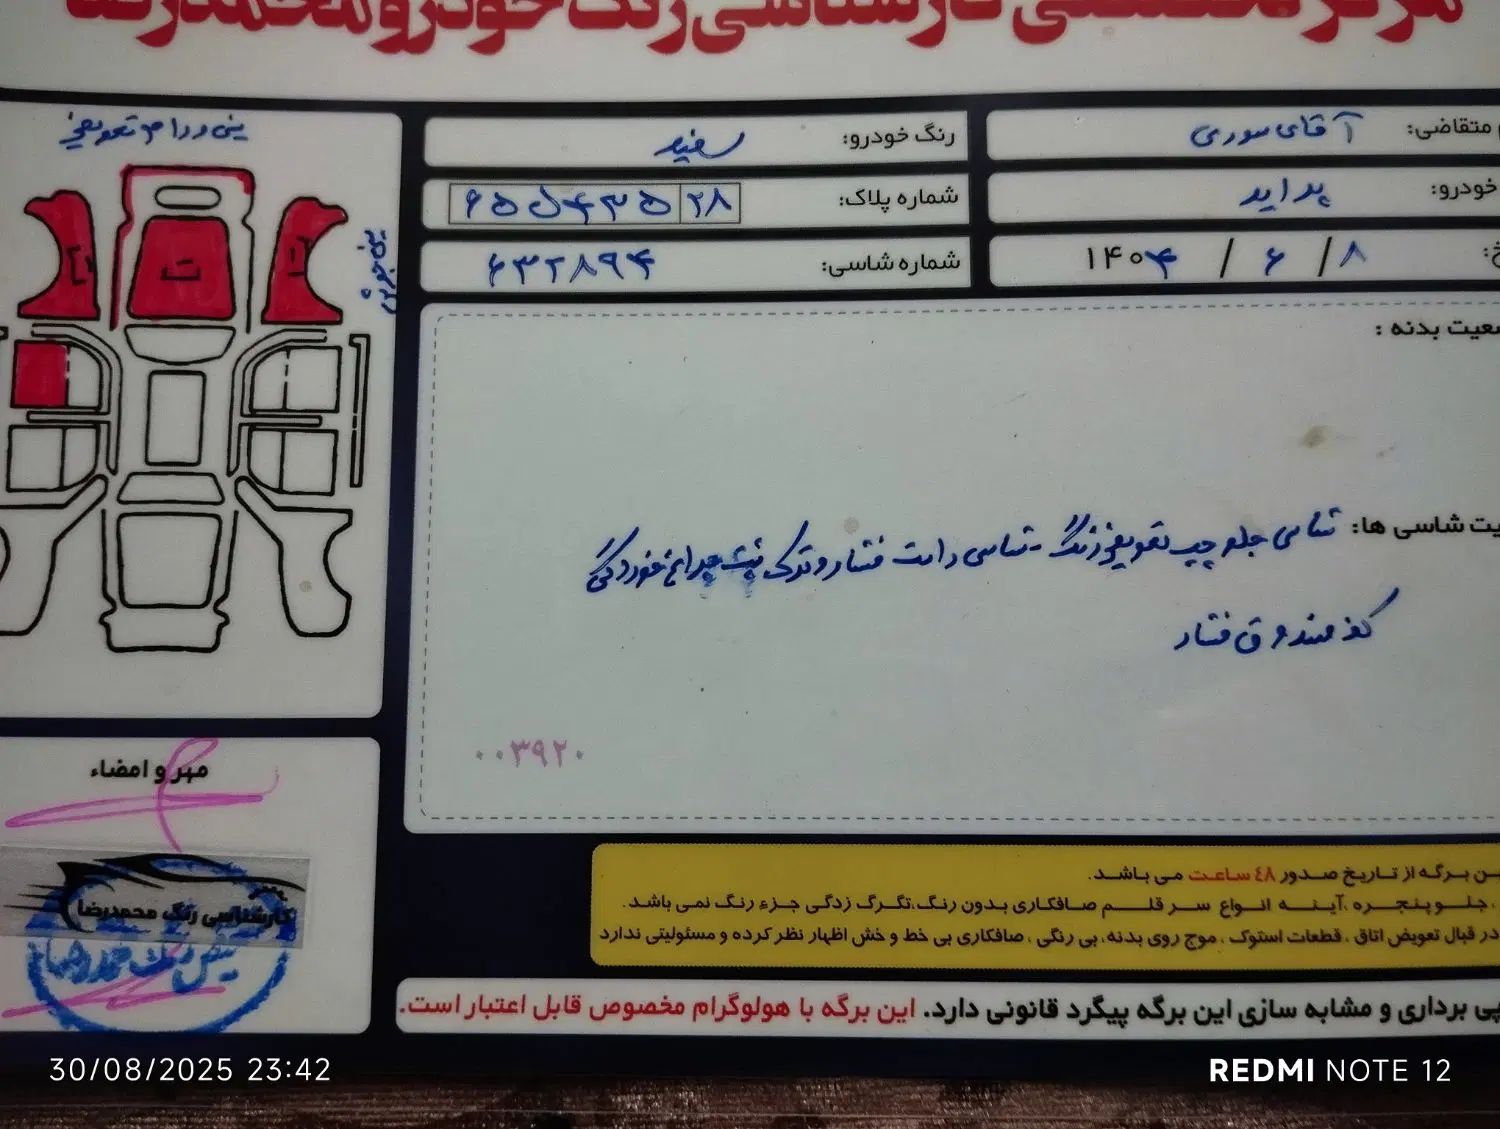 مرکز تخصصی کارشناسی رنگ خودرو محمدرضا
متقاضی: آقای سوری
رنگ خودرو: سفید
خودرو: پراید
شماره پلاک: ۶۵ د ۴۳۵ ۲۸
۱۴۰۴ / ۶ / ۸
شماره شاسی: ۶۳۲۸۹۴
سینی و رام تعویض
سینی جوش
ت
ت
وضعیت بدنه :
شاسی ها: شاسی جلو چپ تعویض و رنگ - شاسی راست فشار و ترک پشت چراغ خوردگی
کف صندوق فشار
۰۰۳۹۲۰
مهر و امضاء
کارشناسی رنگ محمدرضا
برگه از تاریخ صدور ٤٨ ساعت می باشد.
، جلو پنجره ،آینه انواع سر قلم صافکاری بدون رنگ،تگرگ زدگی جزء رنگ نمی باشد.
در قبال تعویض اتاق ، قطعات استوک ، موج روی بدنه، بی رنگی ، صافکاری بی خط و خش اظهار نظر کرده و مسئولیتی ندارد
برداری و مشابه سازی این برگه پیگرد قانونی دارد. این برگه با هولوگرام مخصوص قابل اعتبار است.
30/08/2025 23:42
REDMI NOTE 12